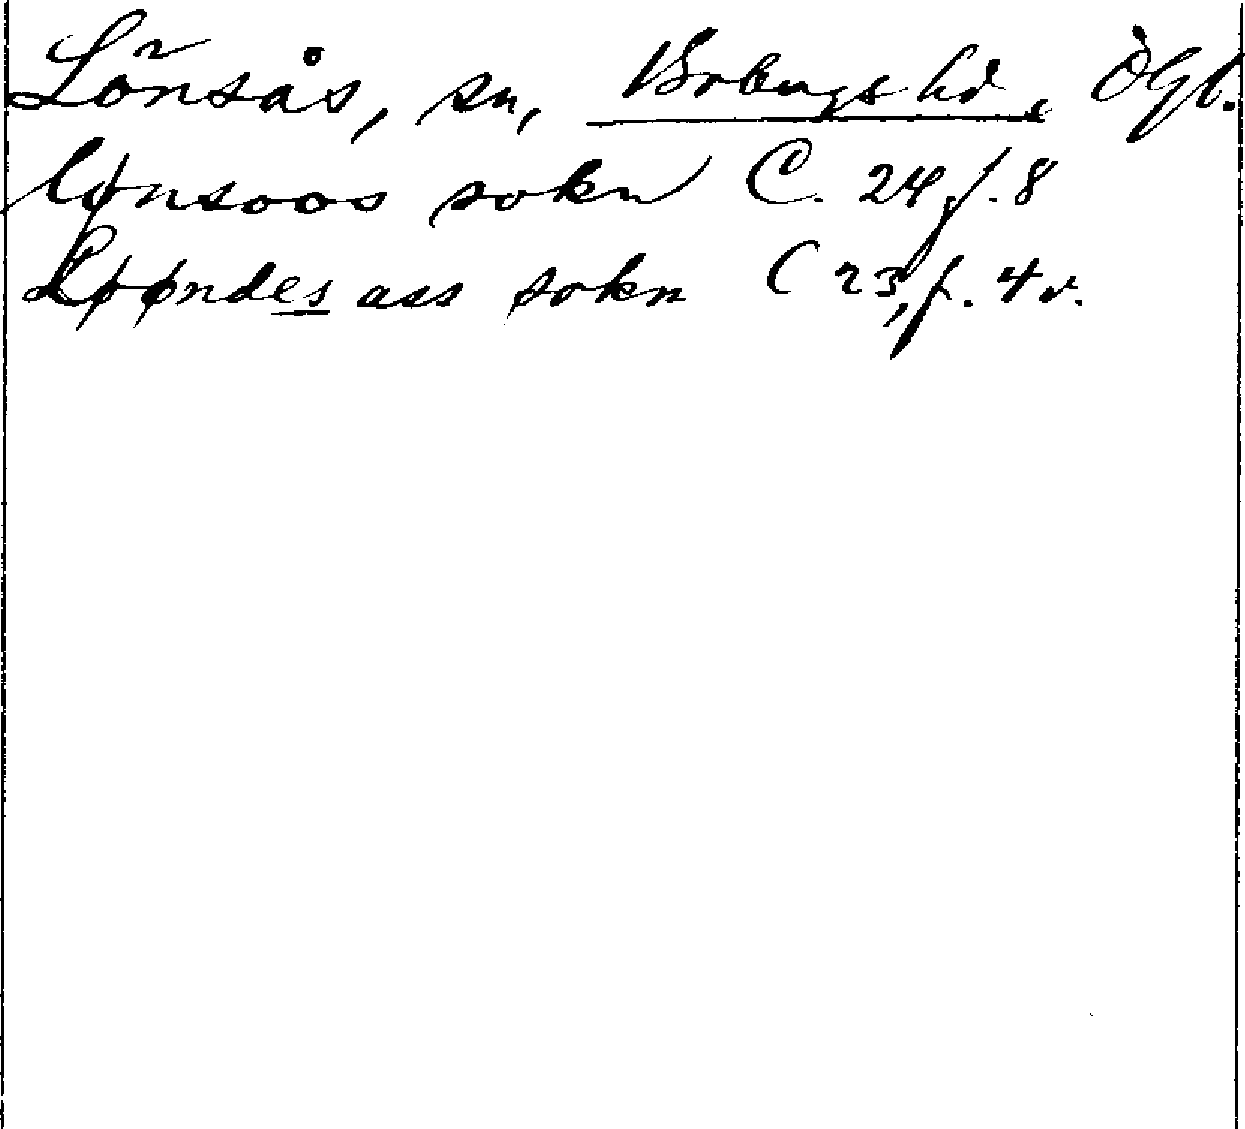 Lönsås, sn, Bobergs hd, Ögl.
lønsoos sokn C. 24 f. 8
Løøndes ass sokn C 23, f. 4 v.